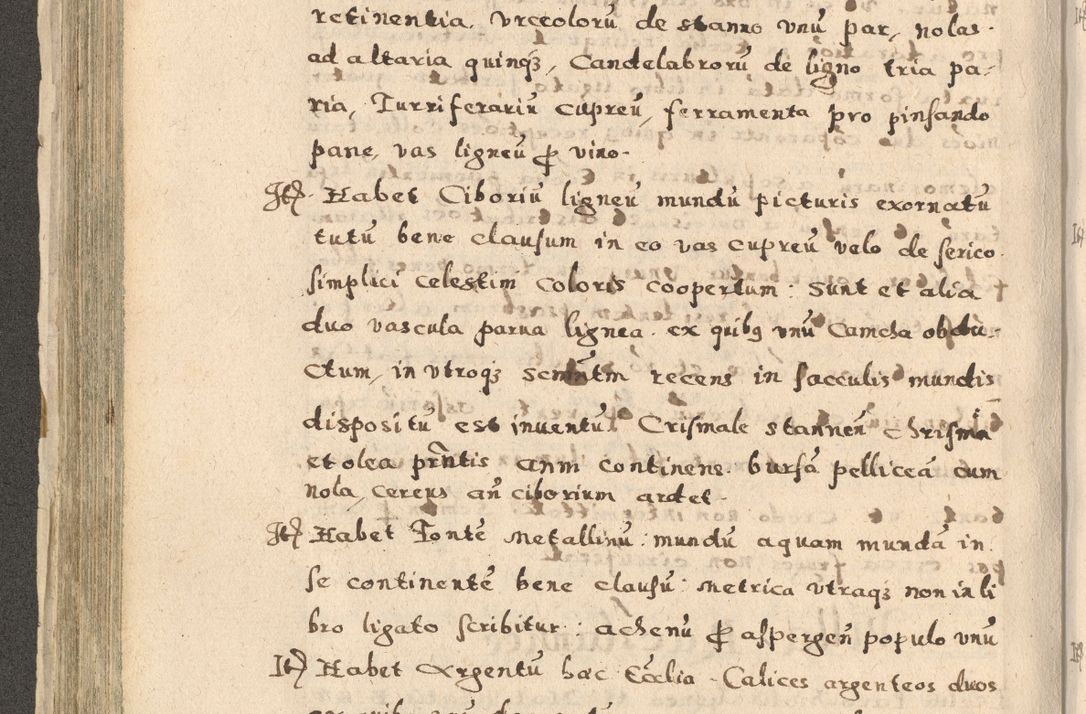 retinentia. Vrceolorū de stanno vnū par, nolas
ad altaria quinqꝫ, Candelabrorū de ligno tria pa-
ria, Turriferariū cupreū, ferramenta pro pinsando
pane, vas ligneū ꝓ vino.
Itꝫ Habet Ciboriū ligneū mundū picturis exornatū
tutū bene clausum in eo vas cupreū velo de serico
simplici celestim coloris coopertum: Sunt et alia
duo vascula parua lignea. ex quibꝰ vnū Camcha obdu-
ctum, in vtroqꝫ recens in sacculis mundis
dispositū est inventū. Crismale stanneū chrisma
et olea prn̄tis anni continens. bursā pelliceā cum
nola, cereus an̄ ciborium ardet.
Itꝫ Habet Fontē metallinū: mundū aquam mundā in
se continentē bene clausū: metrica vtraqꝫ non in li
bro ligato scribitur: achenū ꝓ aspergen̄ populo vnū
Itꝫ Habet Argentū hæc Ecclia. Calices argenteos duos